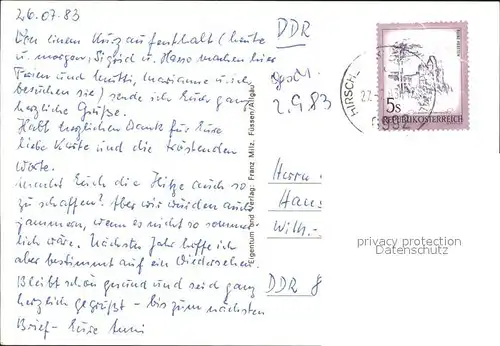 26.07.83
Von einem Kurzaufenthalt (heute
u. morgen, Sigrid u. Hasso machen hier
Ferien und Mutti, Marianne u. ich
besuchen sie) sende ich Euch ganz
herzliche Grüße.
Habt herzlichen Dank für Eure
liebe Karte und die tröstenden
Worte.
Macht Euch die Hitze auch so
zu schaffen? Aber wir würden auch
jammern, wenn es nicht so sommer-
lich wäre. Nächstes Jahr hoffe ich
aber bestimmt auf ein Wiedersehen.
Bleibt schön gesund und seid ganz
herzlich gegrüßt - bis zum nächsten
Brief - Eure
Eigentum und Verlag: Franz Milz, Füssen/Allgäu
DDR
2.9.83
HIRSCH
6992
5s
REPUBLIK ÖSTERREICH
Herrn
Han
Wilh.-
DDR 8
privacy protection
Datenschutz